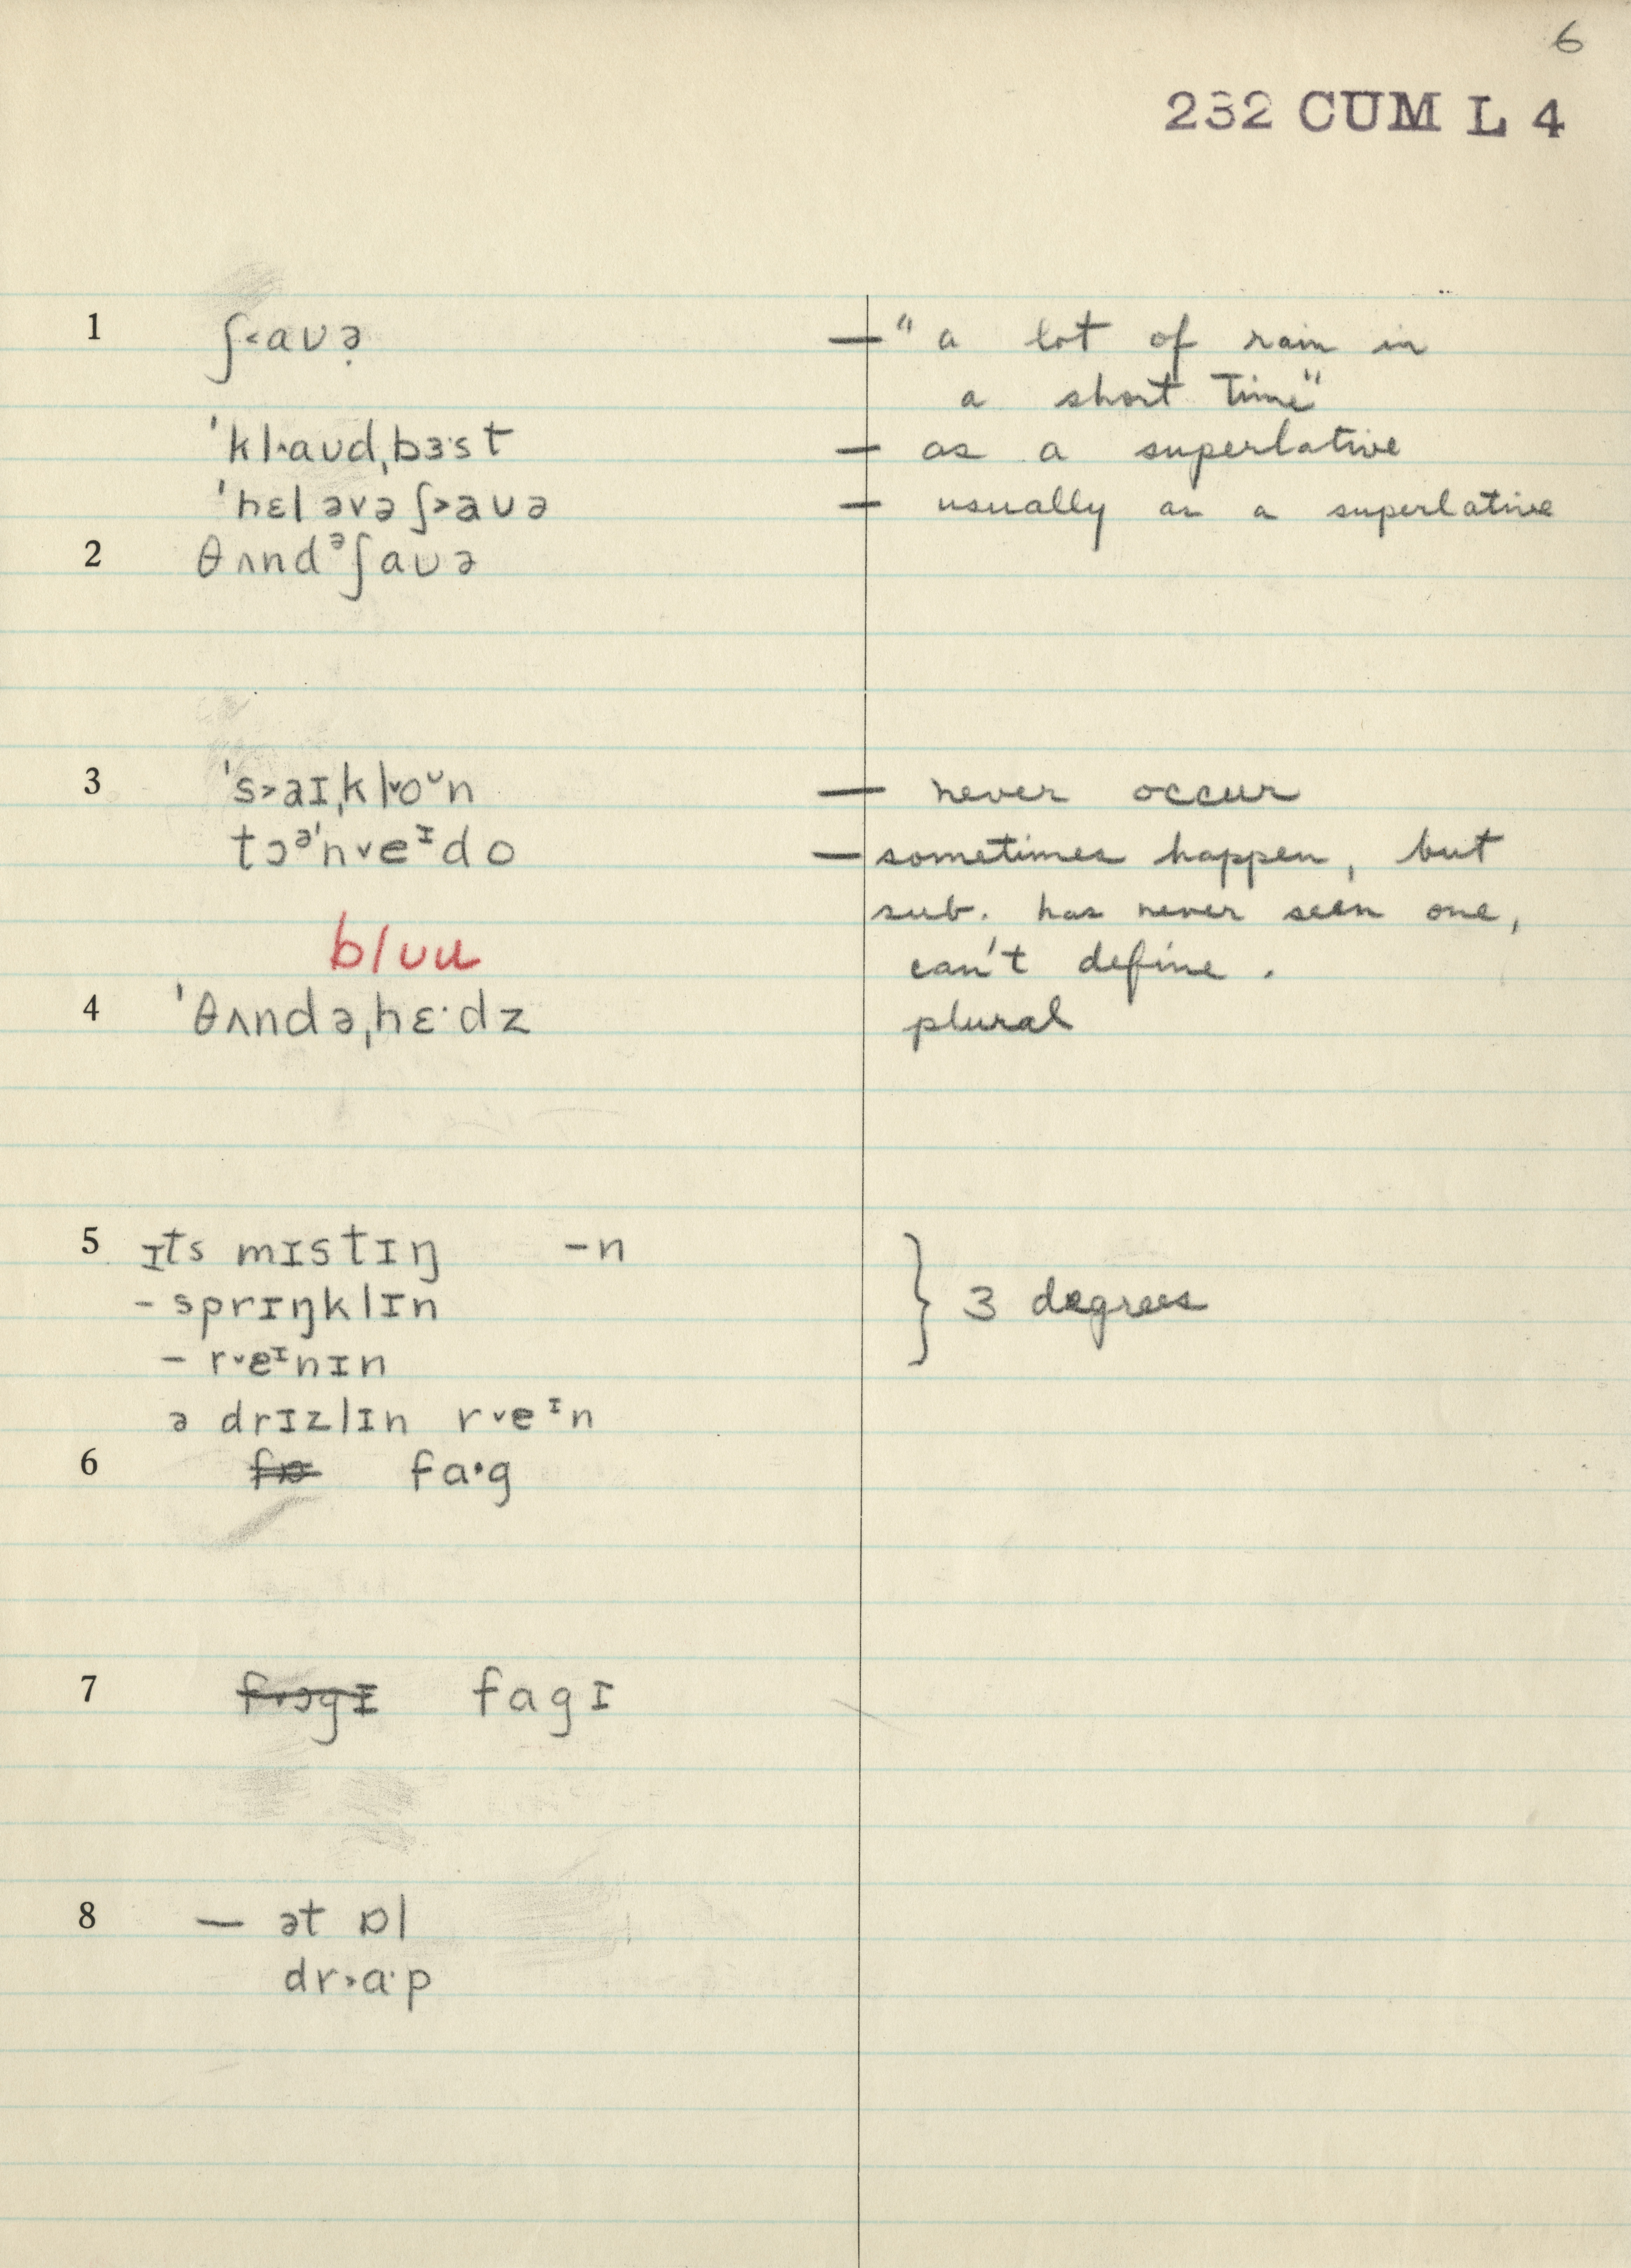 6
232 CUM L 4
1 ʃ˂aʊə̣ — " a lot of rain in
a short time"
ˈkl˄aʊdˌbɜ·st — as a superlative
ˈhɛl əvə ʃ˃aʊə — usually as a superlative
2 θʌndᵊʃaʊə
3 ˈs˃aɪˌkl˅oᶷn — never occur
tɔᵊˈn˅eᶦdo — sometimes happen, but
sub. has never seen one,
blʊu can't define.
4 ˈθʌndəˌhɛ·dz plural
5 ɪts mɪstɪŋ -n
- sprɪŋklɪn } 3 degrees
- r˅eᶦnɪn
ə drɪzlɪn r˅eᶦn
6 fa·g
7 fagɪ
8 — ət ɒl
dr˃ɑ·p